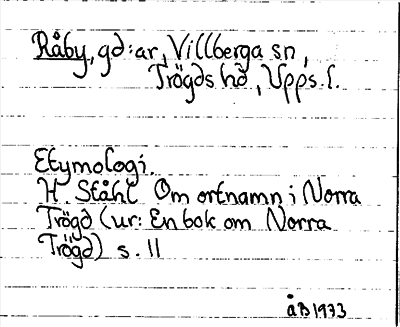 Råby, gd:ar, Villberga sn,
Trögds hd, Upps. l.
Etymologi.
H. Ståhl Om ortnamn i Norra
Trögd (ur: En bok om Norra
Trögd) s. 11
åB 1973